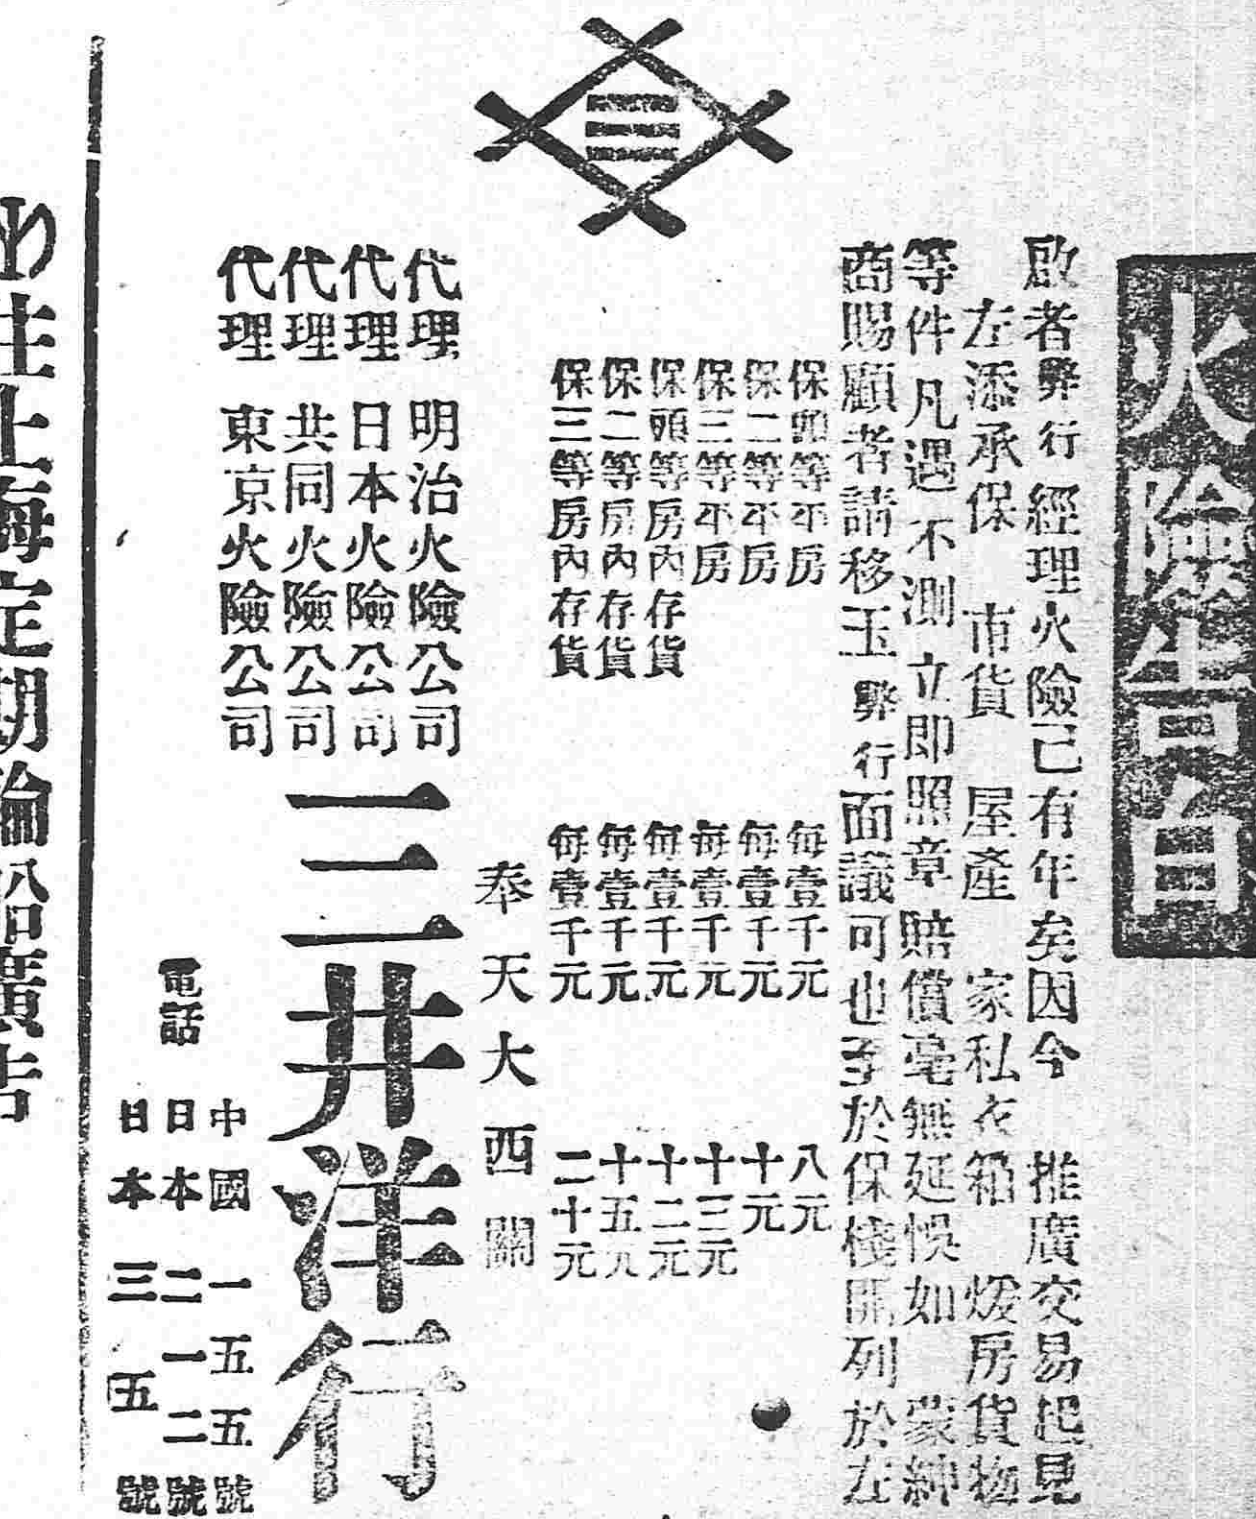 火險告白
啟者弊行經理火險已有年矣因今 推廣交易起見
左添承保 市貨 屋產 家私衣箱 煖房貨物
等件凡遇不測立即照章賠償毫無延悞如 蒙紳
商賜顧者請移玉弊行面議可也至於保棧開列於左
保頭等平房 每壹千元 八元
保二等平房 每壹千元 十元
保三等平房 每壹千元 十三元
保頭等房內存貨 每壹千元 十二元
保二等房內存貨 每壹千元 十五元
保三等房內存貨 每壹千元 二十元
奉天大西關
三
代理 明治火險公司
代理 日本火險公司
代理 共同火險公司
代理 東京火險公司
三井洋行
電話
中國 一五五號
日本 二一二號
日本 三五號
往上海定期輪船廣告